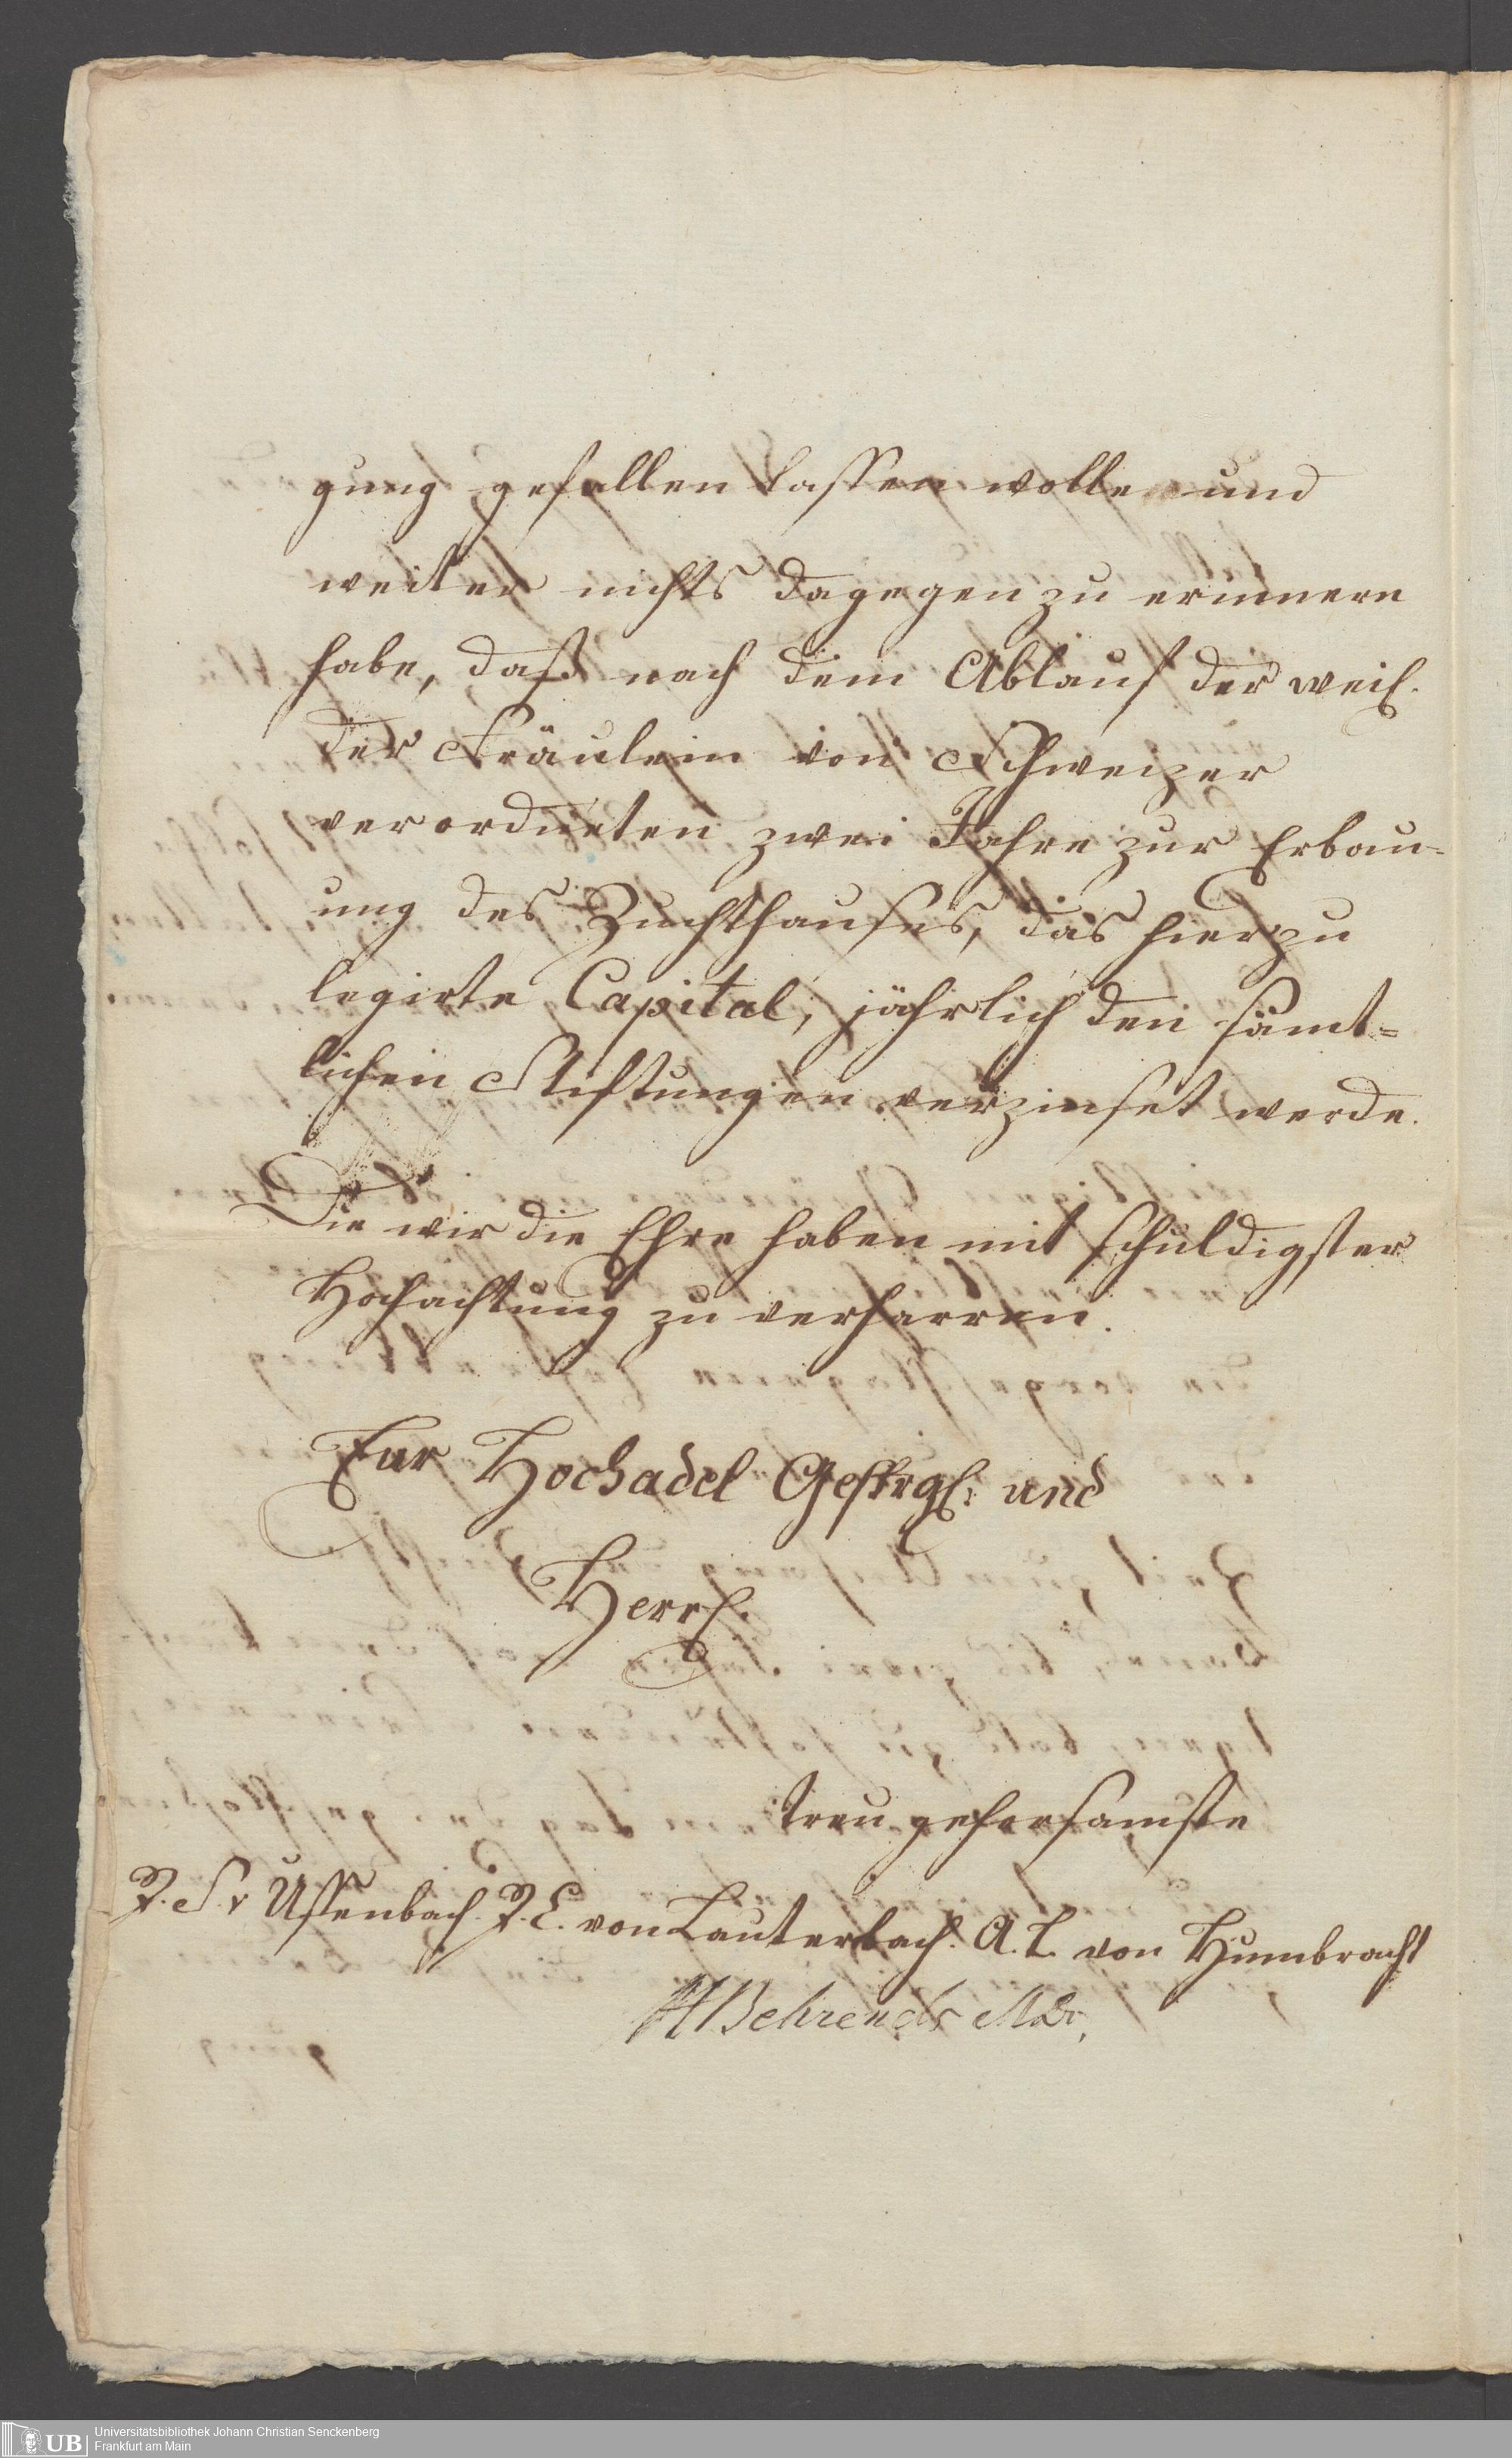 gung gefallen lassen wolle und
weiter nichts dagegen zu erinnern
habe, daß nach dem Ablauf der weil.
der Fräulein von Schweizer
verordneten zwei Jahre zur Erbau-
ung des Zuchthauses, das hierzu
legirte Capital, jährlich den sämt=
lichen Stiftungen verzinset werde.
Die wir die Ehre haben mit schuldigster
Hochachtung zu verharren.
Eur Hochadel Gestrgl. und
Herrl.
treu gehorsamste
J. S. v Uffenbach. J. E. von Lauterbach. A. L. von Humbracht
Behrends MDr.
Universitätsbibliothek Johann Christian Senckenberg
Frankfurt am Main
UB